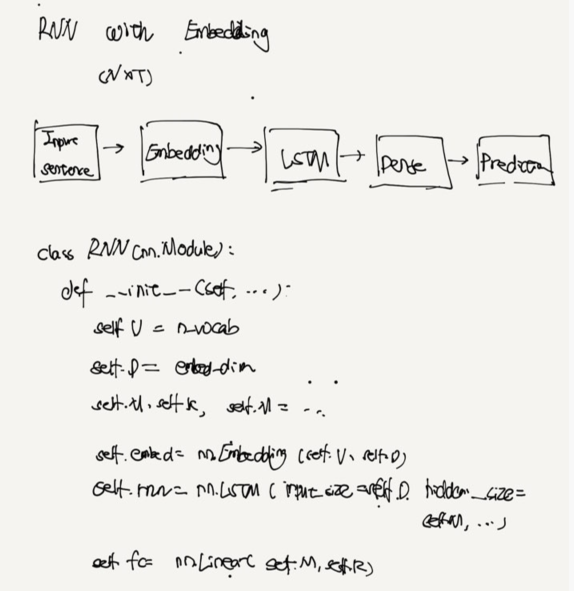 RNN with Embedding
(N×T)
Input sentence → Embedding → LSTM → Dense → Prediction
class RNN(nn.Module):
def __init__(self, ...):
self V = n_vocab
self.D = embed-dim
self.M, self.K, self.M = ...
self.embed = nn.Embedding (self.V, self.D)
self.rnn = nn.LSTM ( input_size = self.D, hidden_size =
self.M, ...)
self fc = nn.Linear( self.M, self.K)